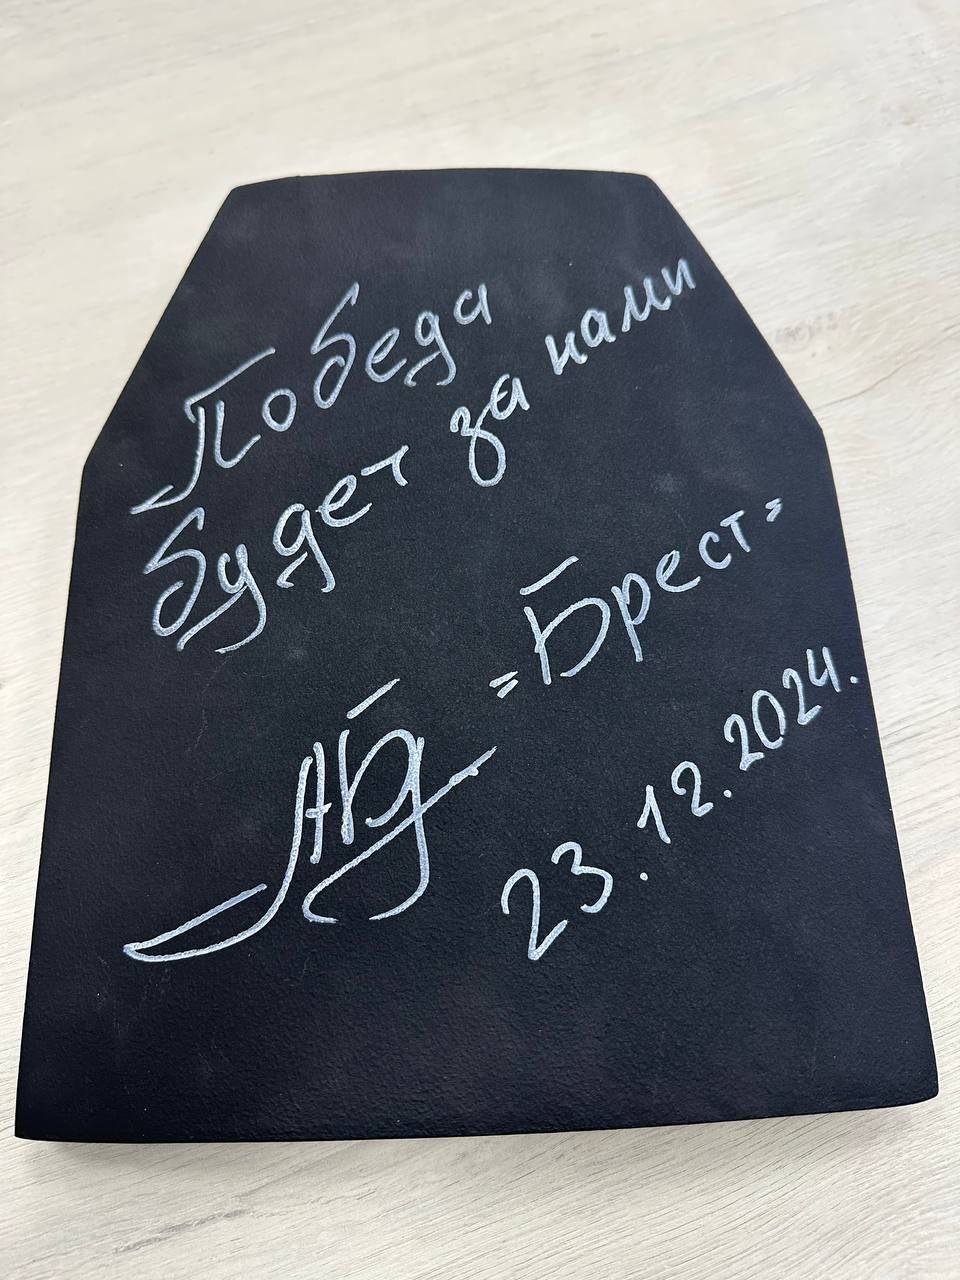 Победа
будет за нами
=Брест=
23.12.2024.